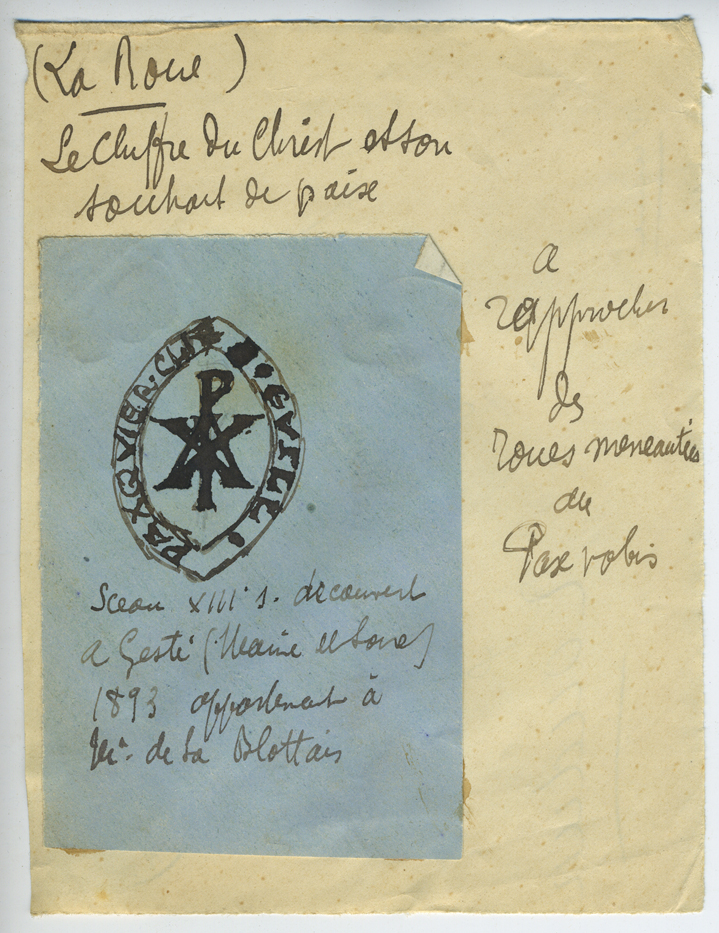 (La Roue)
Le Chiffre du Christ et son
souhait de paix
a
rapprocher
des
roues
du
Pax vobis
PAXQVIER·CL
Sceau XIII s. découvert
a Gesté (Maine et Loire)
1893 appartenant à
Mr. de la Blottais